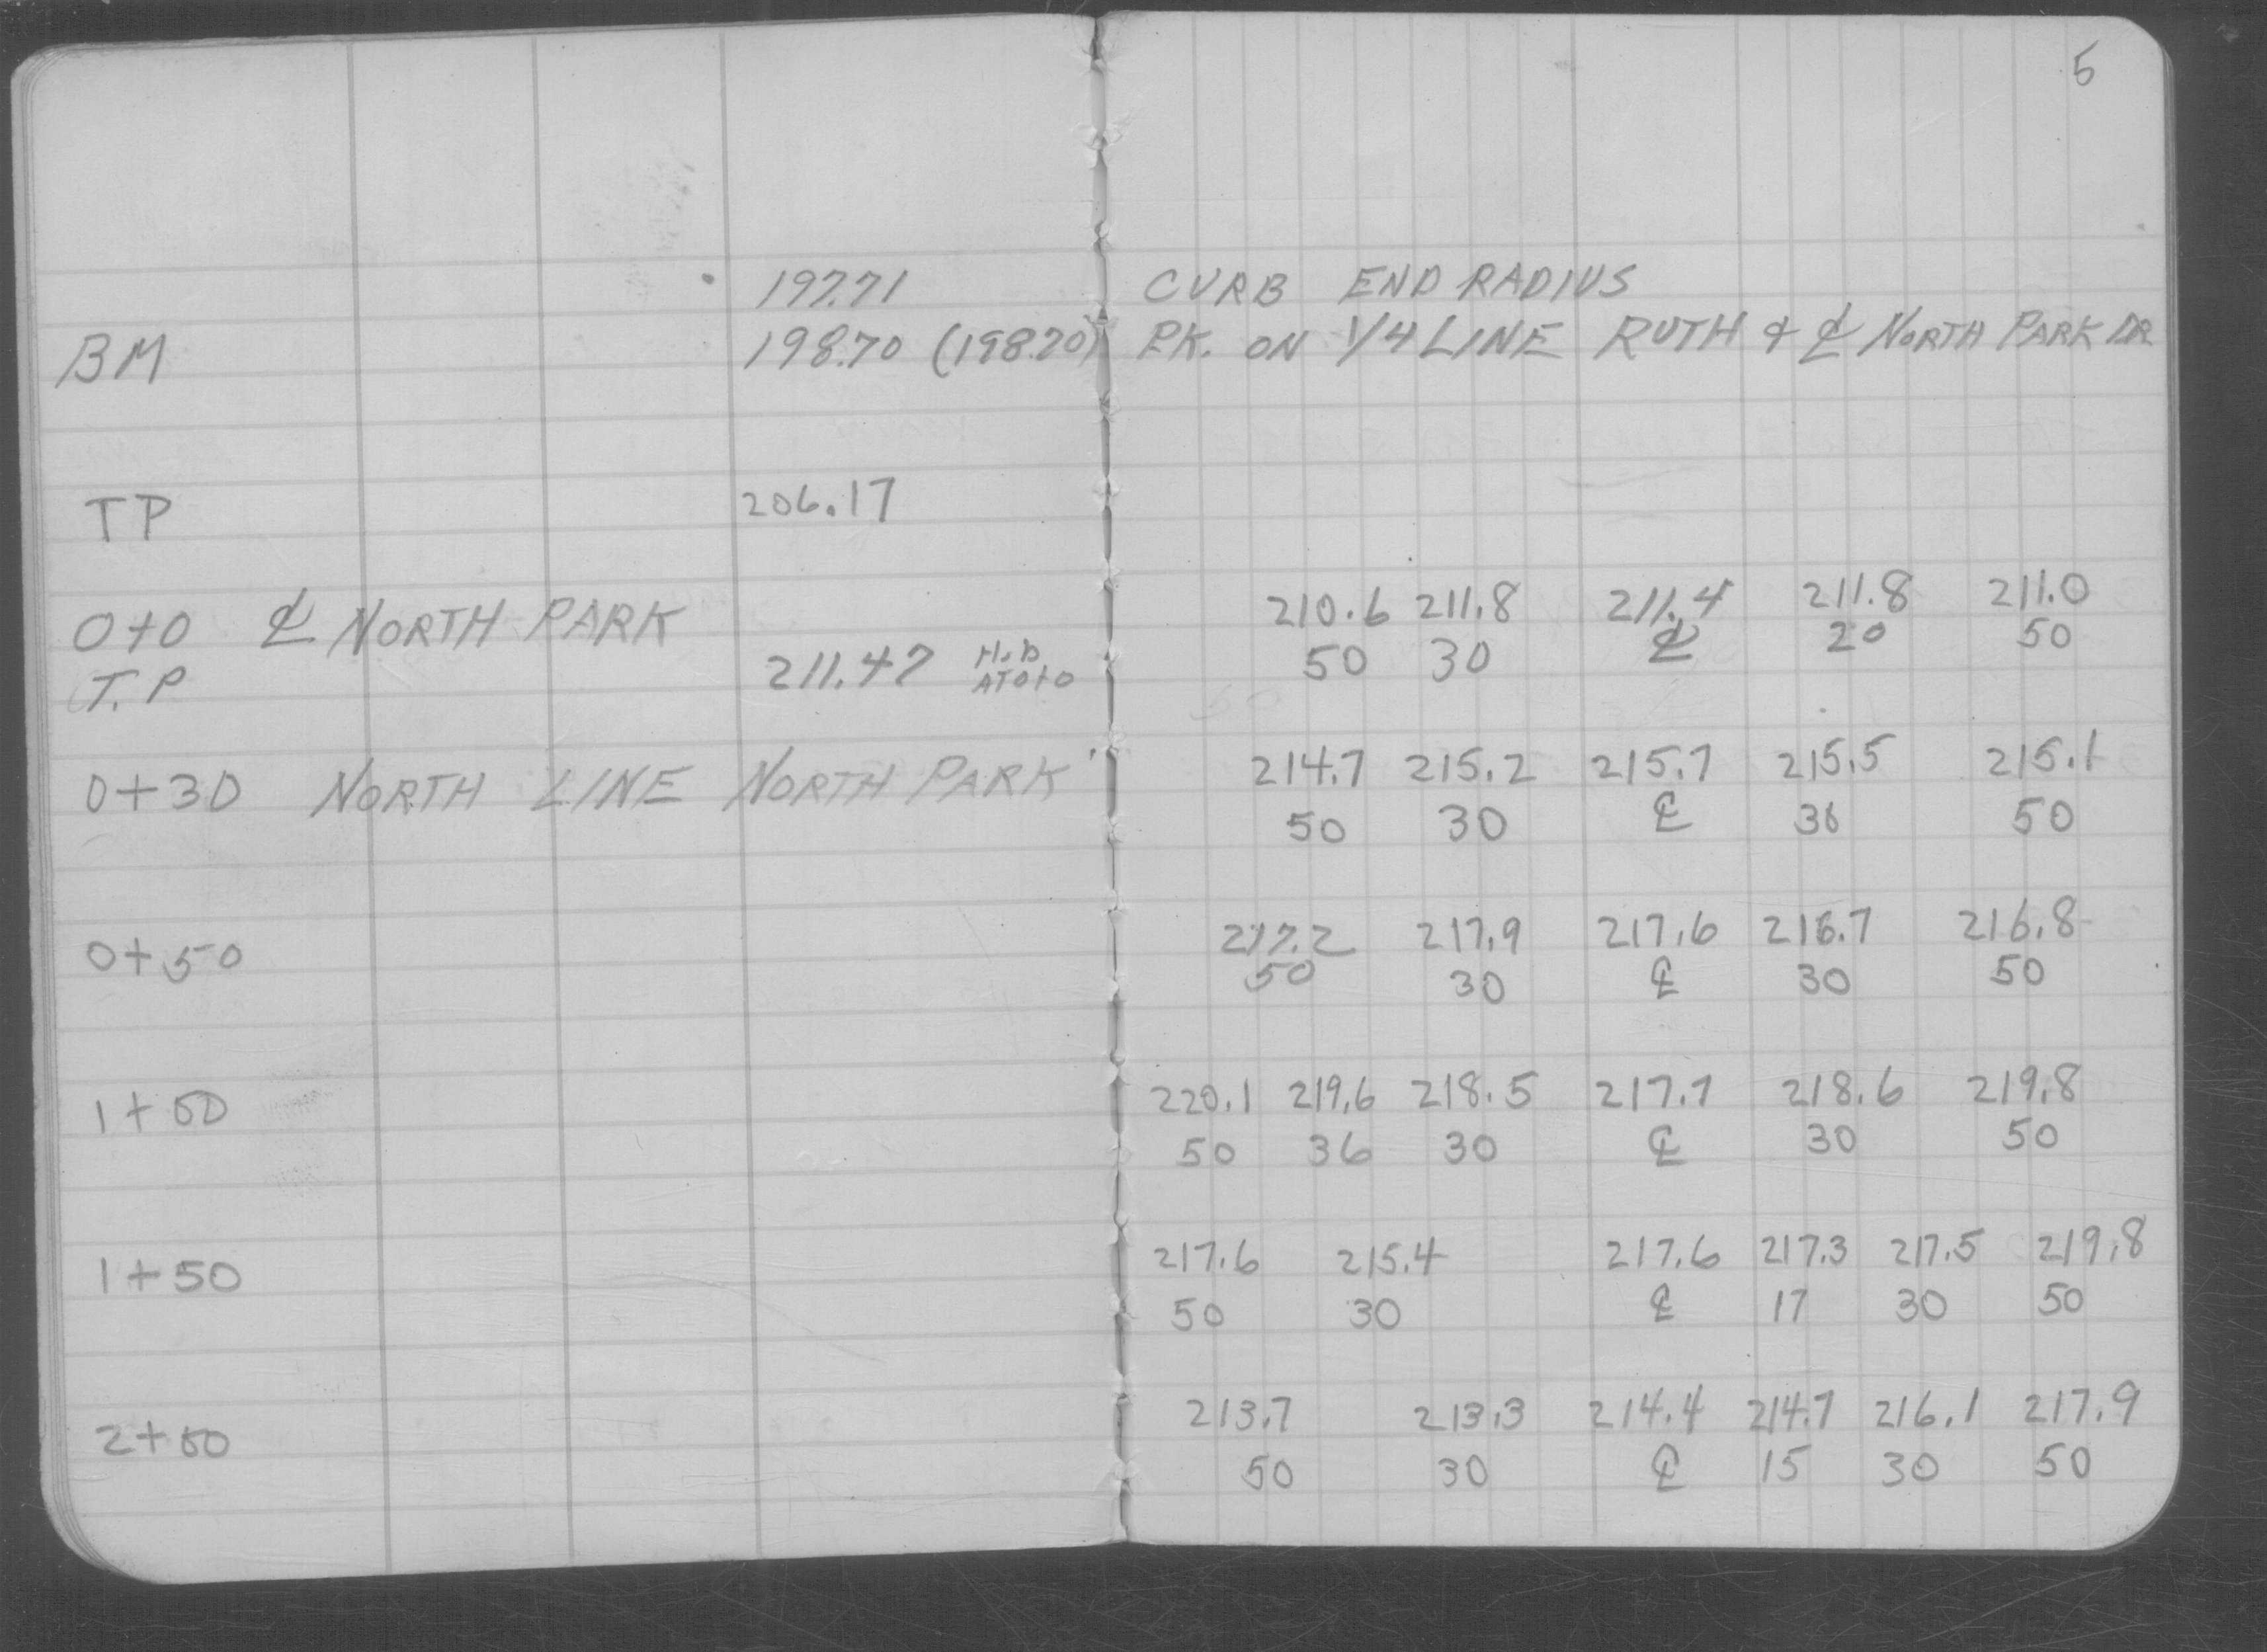 5
197.71 CURB END RADIUS
BM 198.70 (198.70) PK. ON 1/4 LINE RUTH & ℄ NORTH PARK DR
TP 206.17
0+0 ℄ NORTH PARK 210.6 211.8 211.4 211.8 211.0
50 30 ℄ 20 50
T.P 211.47 HUB AT 0+0
0+30 NORTH LINE NORTH PARK 214.7 215.2 215.7 215.5 215.1
50 30 ℄ 36 50
0+50 217.2 217.9 217.6 216.7 216.8
50 30 ℄ 30 50
1+00 220.1 219.6 218.5 217.7 218.6 219.8
50 36 30 ℄ 30 50
1+50 217.6 215.4 217.6 217.3 217.5 219.8
50 30 ℄ 17 30 50
2+00 213.7 213.3 214.4 214.7 216.1 217.9
50 30 ℄ 15 30 50